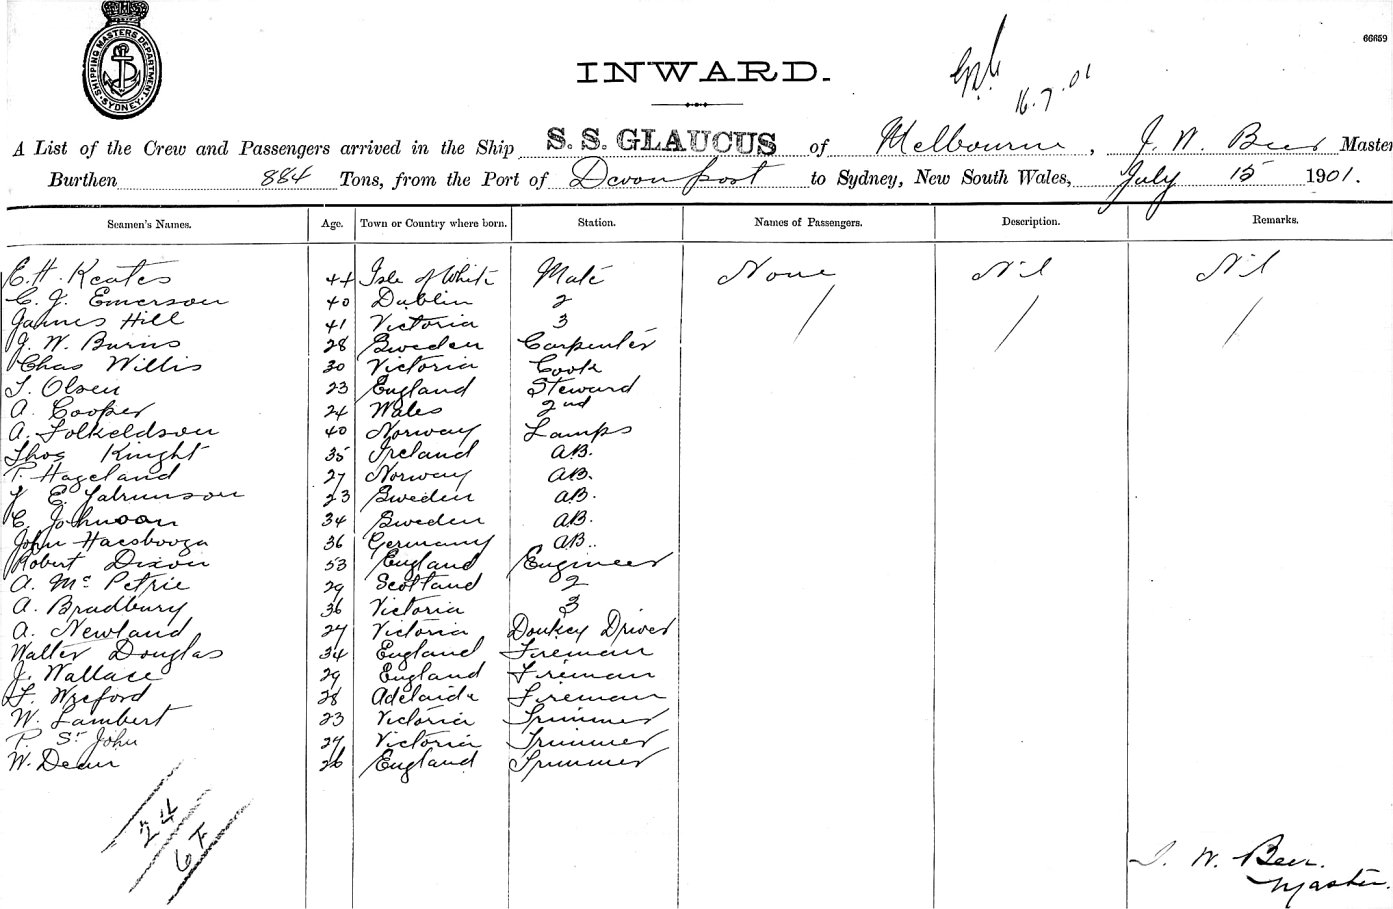 SHIPPING MASTERS DEPARTMENT
SYDNEY
66659
INWARD.
16.7.01
A List of the Crew and Passengers arrived in the Ship S. S. GLAUCUS of Melbourne, J. W. Beer Master
Burthen 884 Tons, from the Port of Devonport to Sydney, New South Wales, July 15 1901.
Seamen's Names. Age. Town or Country where born. Station. Names of Passengers. Description. Remarks.
E. H. Keates 44 Isle of White Mate None Nil Nil
C. J. Emerson 40 Dublin 2
James Hill 41 Victoria 3
J. W. Burns 28 Sweden Carpenter
Chas Willis 30 Victoria Cook
T. Olsen 23 England Steward
A. Cooper 24 Wales 2nd
A. Folkeldson 40 Norway Lamps
Thos Knight 35 Ireland A.B.
P. Hageland 27 Norway A.B.
E. 23 Sweden A.B.
C. Johnson 34 Sweden A.B.
John 36 Germany A.B.
Robert Dixon 53 England Engineer
A. Mc Petrie 29 Scotland 2
A. Bradbury 36 Victoria 3
A. Newland 27 Victoria Donkey Driver
Walter Douglas 34 England Fireman
J. Wallace 29 England Fireman
F. Wreford 28 Adelaide Fireman
W. Lambert 23 Victoria Trimmer
P. St John 27 Victoria Trimmer
W. Dean 26 England Trimmer
24
J. W. Beer.
Master.